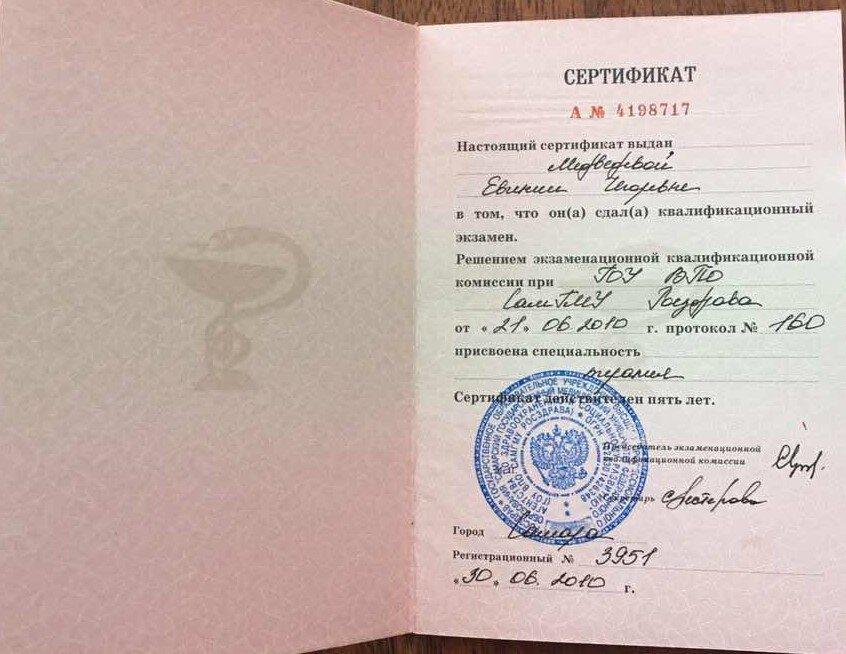 СЕРТИФИКАТ
А № 4198717
Настоящий сертификат выдан
Медведевой
Евгении Игоревне
в том, что он(а) сдал(а) квалификационный
экзамен.
Решением экзаменационной квалификационной
комиссии при ГОУ ВПО
СамГМУ Росздрава
от «21» 06.2010 г. протокол № 160
присвоена специальность
терапия
Сертификат действителен пять лет.
Председатель экзаменационной
квалификационной комиссии
Секретарь
Город Самара
Регистрационный № 3951
«30» 06. 2010 г.